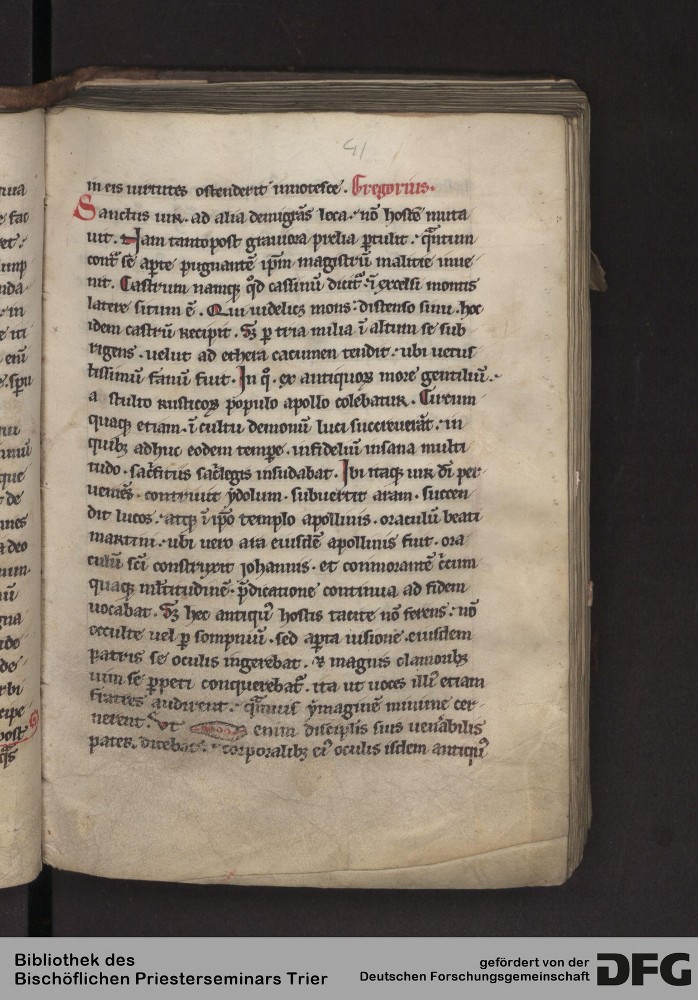 41
in eis uirtutes ostenderit innotesce. Gregorius.
Sanctus uir. ad alia demigrãs loca. nõ hostẽ muta
uit. Nam tanto post grauiora prelia ꝑtulit. q̃ntum
cont̃ se aꝑte pugnantẽ ip̃m magistrũ malitie inue
nit. Castrum namq; q̃d cassinũ dicit᷑. ĩ excelsi montis
latere situm ẽ. Qui uidelicꝫ mons. distenso sinu. hoc
idem castrũ recipit. Sꝫ ꝑ tria milia ĩ altum se sub
rigens. uelut ad ethera cacumen tendit. ubi uetus
tissimũ fanũ fuit. In q̊. ex antiquoꝝ more gentiliũ.
a stulto rusticoꝝ populo apollo colebatur. Circum
quaq; etiam. ĩ cultu demonũ luci succreuerãt. in
quibꝫ adhuc eodem tempe. infideliũ insana multi
tudo. sac̃ficiis sac̃legis insudabat. Ibi itaq; uir dĩ per
ueniẽs. contriuit ydolum. subuertit aram. succen
dit lucos. atq; ĩ ip̃o templo apollinis. oraculũ beati
martini. ubi uero ara eiusdẽ apollinis fuit. ora
culũ sc̃i construxit iohannis. et conmorantẽ c̃cum
quaq; ml̃titudinẽ. p̃dicatione continua ad fidem
uocabat. Sꝫ hec antiquꝰ hostis tacite nõ ferens. nõ
occulte uel ꝑ sompniũ. sed aꝑta uisione. eiusdem
patris se oculis ingerebat. ⁊ magnis clamoribꝫ
uim se ꝑpeti conquerebat᷑. ita ut uoces illiꝰ etiam
fratres audirent. q̃muis ymaginẽ minime cer
nerent. Ut enim discipl̃is suis uen̾abilis
pater. dicebat. corporalibꝫ eiꝰ oculis isdem antiquꝰ
Bibliothek des
Bischöflichen Priesterseminars Trier
gefördert von der
Deutschen Forschungsgemeinschaft
DFG